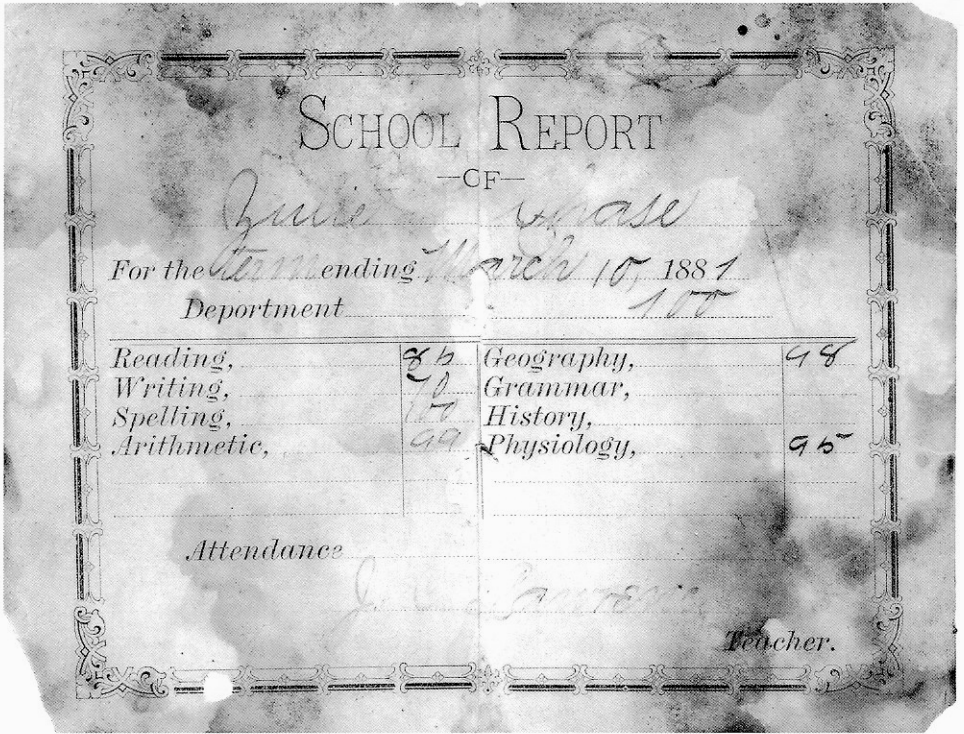 SCHOOL REPORT
—OF—
Chase
For the term ending March 10, 1881
Deportment 100
Reading, 85 Geography, 98
Writing, 70 Grammar,
Spelling, 100 History,
Arithmetic, 99 Physiology, 95
Attendance
J.
Teacher.